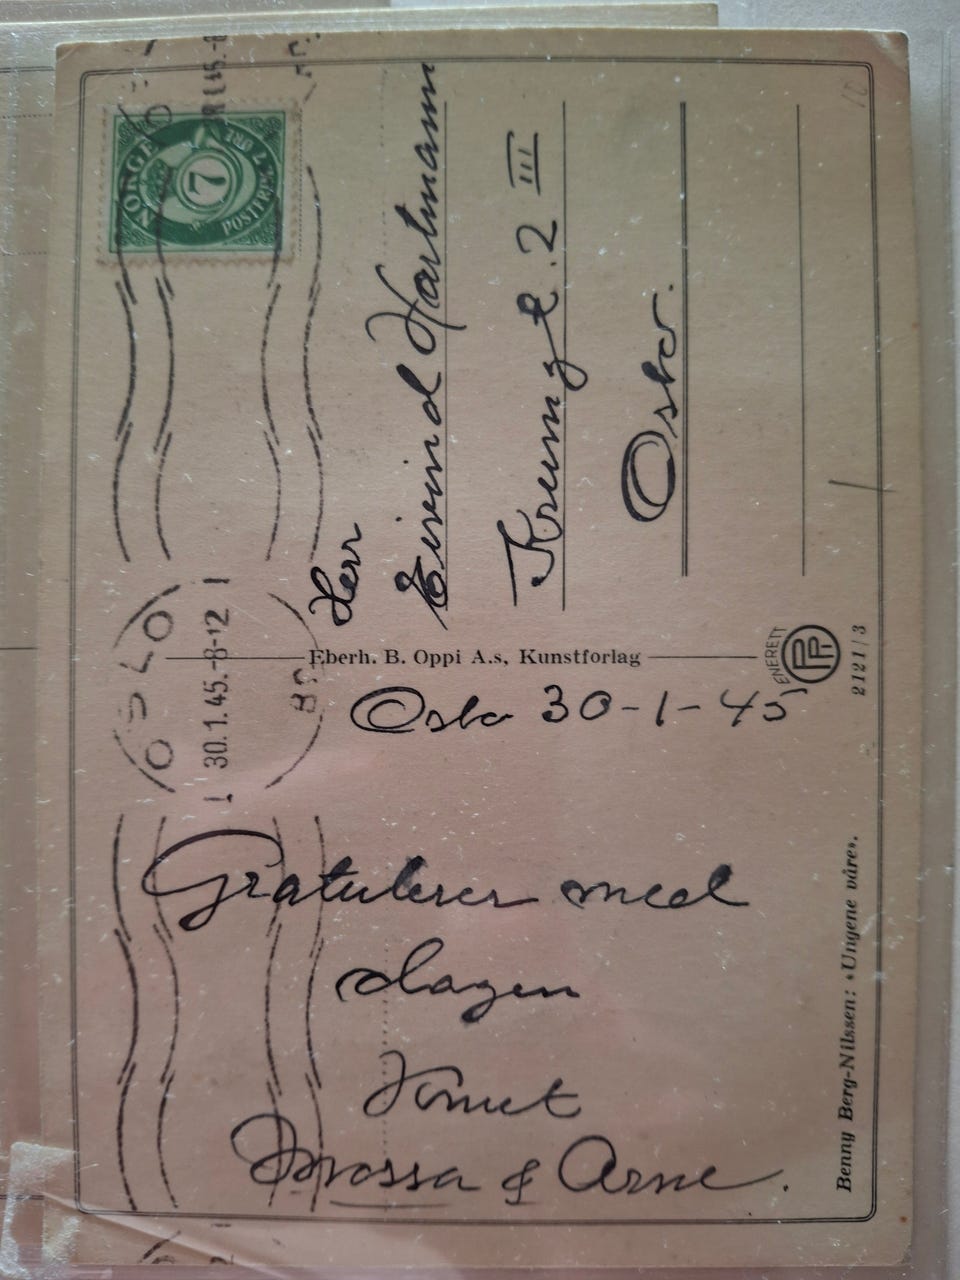 Oslo 30-1-45
Gratulerer med
dagen
& Arne.
Herr
Eivind Hartmann
2 III
Oslo.
NORGE
7
POSTFRIM
OSLO
30.1.45.-8-12
BR
Eberh. B. Oppi A.s, Kunstforlag
ENERETT
2121/3
Benny Berg-Nilssen: «Ungene våre».